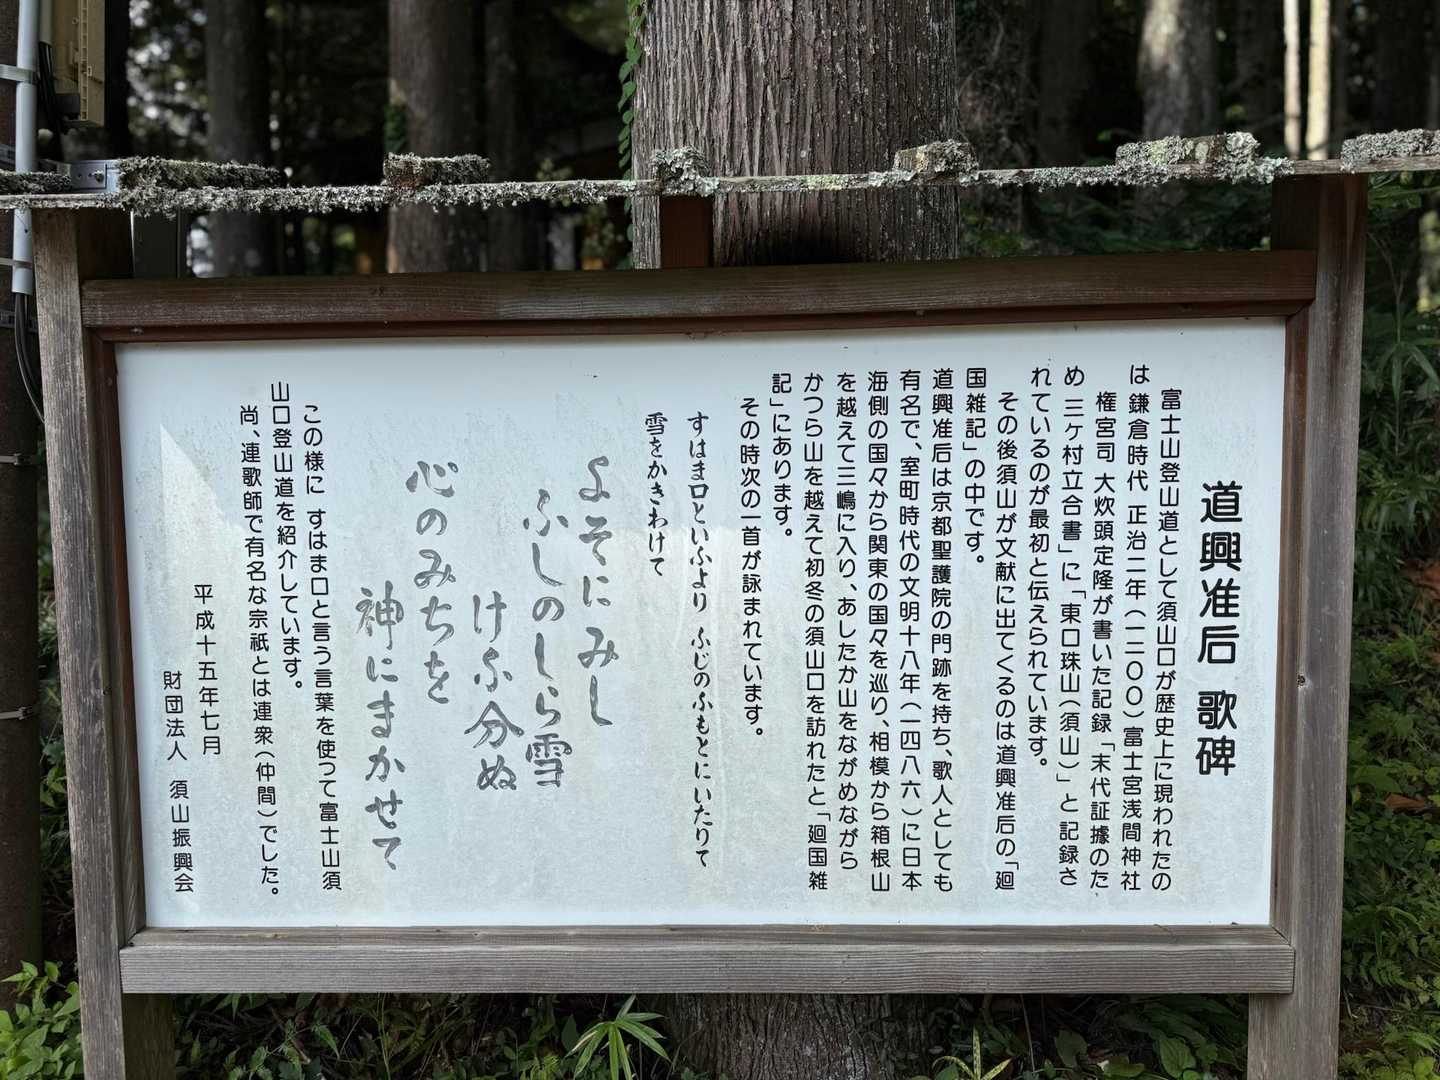 道興准后 歌碑
富士山登山道として須山口が歴史上に現われたの
は鎌倉時代 正治二年(一二〇〇)富士宮浅間神社
権宮司 大炊頭定隆が書いた記録「末代証據のた
め 三ヶ村立合書」に「東口珠山(須山)」と記録さ
れているのが最初と伝えられています。
その後須山が文献に出てくるのは道興准后の「廻
国雑記」の中です。
道興准后は京都聖護院の門跡を持ち、歌人としても
有名で、室町時代の文明十八年(一四八六)に日本
海側の国々から関東の国々を巡り、相模から箱根山
を越えて三嶋に入り、あしたか山をながめながら
かつら山を越えて初冬の須山口を訪れたと「廻国雑
記」にあります。
その時次の一首が詠まれています。
すはま口といふより ふじのふもとにいたりて
雪をかきわけて
よそにみし
ふしのしら雪
けふ分ぬ
心のみちを
神にまかせて
この様に すはま口と言う言葉を使つて富士山須
山口登山道を紹介しています。
尚、連歌師で有名な宗祇とは連衆(仲間)でした。
平成十五年七月
財団法人 須山振興会